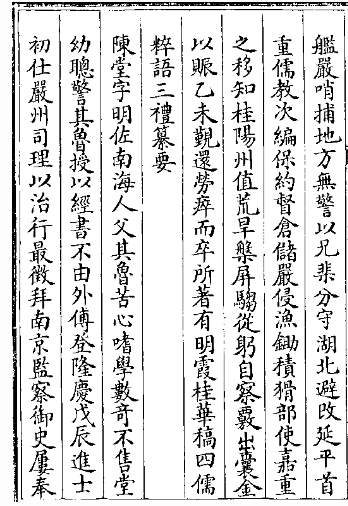 艦嚴哨捕地方無警以兄棐分守湖北避改延平首
重儒教次編保約督倉儲嚴侵漁鋤積猾部使嘉重
之移知桂陽州值荒旱槃屏騶從躬自察覈出囊金
以賑乙未覲還勞瘁而卒所著有明霞桂華稿四儒
粹語三禮纂要
陳堂字明佐南海人父其魯苦心嗜學數奇不售堂
幼聰警其魯授以經書不由外傅登隆慶戊辰進士
初仕嚴州司理以治行最徵拜南京監察御史屢奉